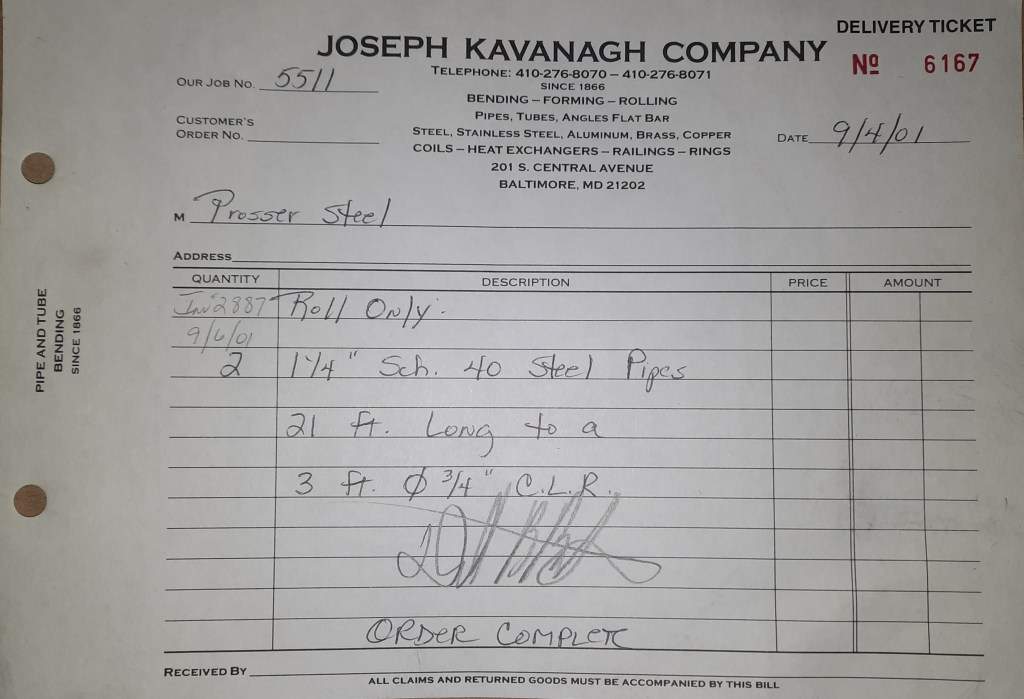 DELIVERY TICKET
JOSEPH KAVANAGH COMPANY
Nº 6167
TELEPHONE: 410-276-8070 – 410-276-8071
OUR JOB NO. 5511
SINCE 1866
BENDING – FORMING – ROLLING
PIPES, TUBES, ANGLES FLAT BAR
CUSTOMER'S
ORDER NO.
STEEL, STAINLESS STEEL, ALUMINUM, BRASS, COPPER
DATE 9/4/01
COILS – HEAT EXCHANGERS – RAILINGS – RINGS
201 S. CENTRAL AVENUE
BALTIMORE, MD 21202
M Prosser Steel
ADDRESS
QUANTITY DESCRIPTION PRICE AMOUNT
Inv 2887 Roll Only.
9/6/01
2 1 1/4" Sch. 40 Steel Pipes
21 ft. Long to a
3 ft. Ø 3/4" C.L.R.
ORDER COMPLETE
RECEIVED BY
ALL CLAIMS AND RETURNED GOODS MUST BE ACCOMPANIED BY THIS BILL
PIPE AND TUBE
BENDING
SINCE 1866